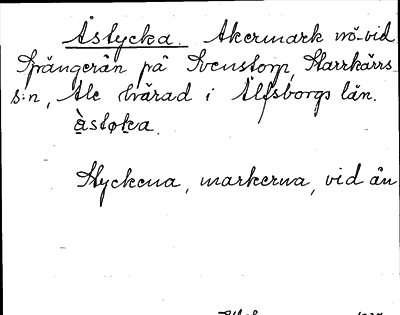 Åstycka. Åkermark nö-vid
Sprängerån på Svenstorp, Starrkärrs
s:n, Ale härad i Älfsborgs län.
àstoka.
Styckena, markerna, vid ån